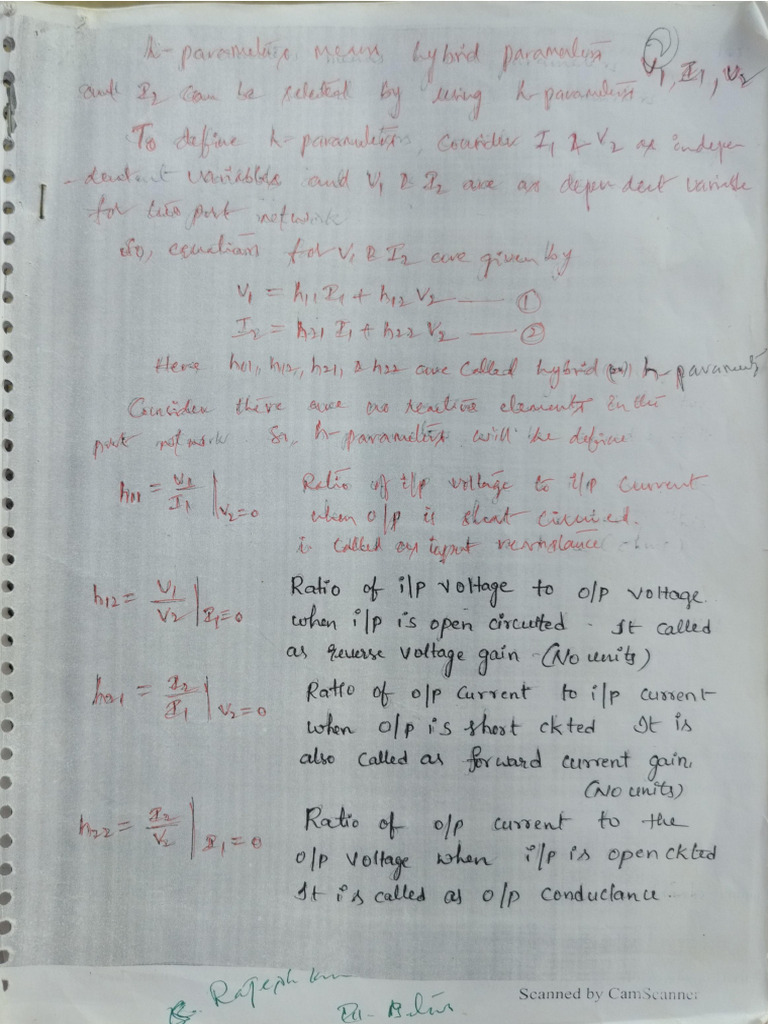 h-parameters means hybrid parameters V1, I1, V2
and I2 can be related by using h-parameters.
To define h-parameters, consider I1 & V2 as indepen
-dent variables and V1 & I2 are as dependent variable
for two port network
So, equations for V1 & I2 are given by
V1 = h11 I1 + h12 V2 —— ①
I2 = h21 I1 + h22 V2 —— ②
Here h11, h12, h21, & h22 are called hybrid (or) h-parameters
Consider there are no reactive elements in the
port network So, h-parameters will be define
h11 = V1/I1 | V2=0 Ratio of i/p voltage to i/p current
when o/p is short circuited.
is called as input resistance
h12 = V1/V2 | I1=0 Ratio of i/p voltage to o/p voltage.
when i/p is open circuited. It called
as reverse voltage gain (No units)
h21 = I2/I1 | V2=0 Ratio of o/p current to i/p current
when o/p is short ckted It is
also called as forward current gain,
(No units)
h22 = I2/V2 | I1=0 Ratio of o/p current to the
o/p voltage when i/p is open ckted
It is called as o/p conductance.
Rajesh
Scanned by CamScanner